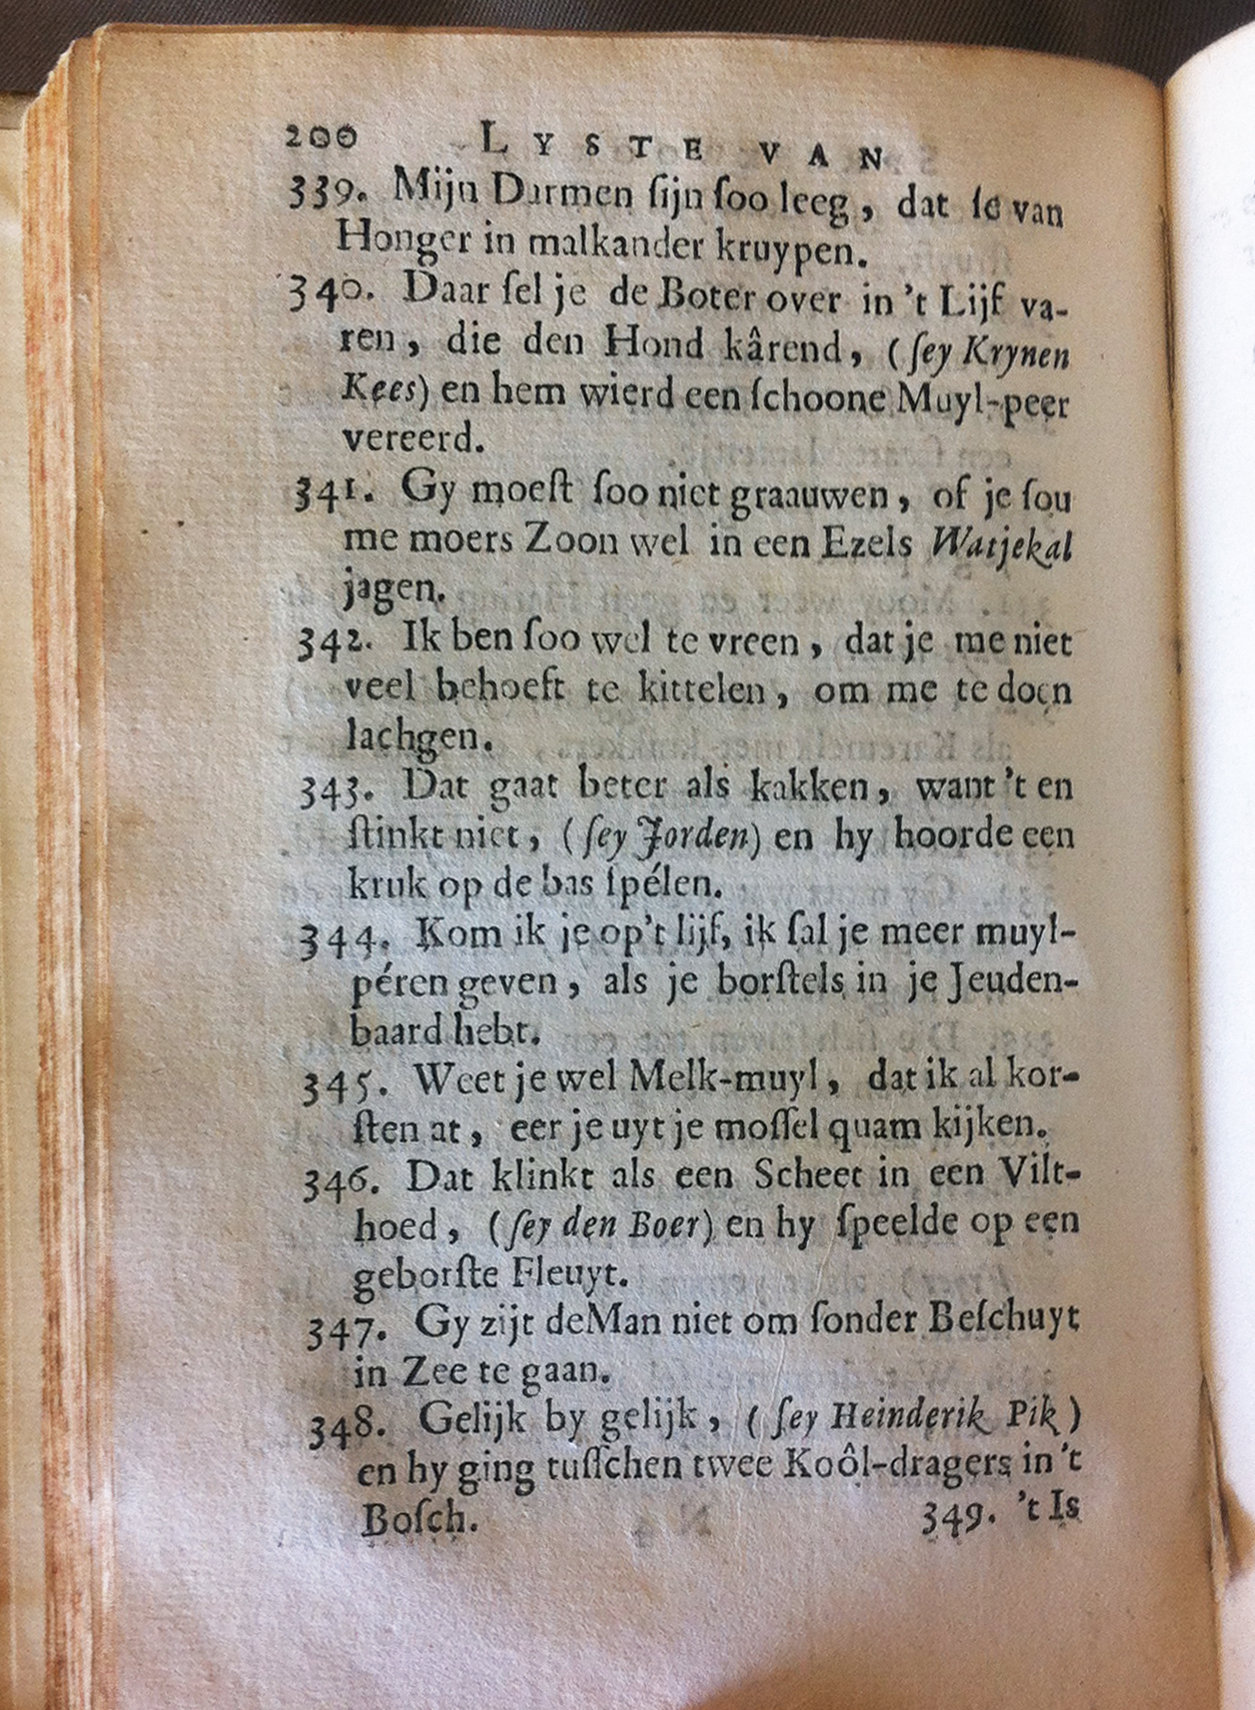 200 LYSTE VAN
339. Mijn Darmen ſijn ſoo leeg, dat ſe van
Honger in malkander kruypen.
340. Daar ſel je de Boter over in 't Lijf va-
ren, die den Hond kârend, (ſey Krynen
Kees) en hem wierd een ſchoone Muyl-peer
vereerd.
341. Gy moeſt ſoo niet graauwen, of je ſou
me moers Zoon wel in een Ezels Watjekal
jagen.
342. Ik ben ſoo wel te vreen, dat je me niet
veel behoeft te kittelen, om me te doen
lachgen.
343. Dat gaat beter als kakken, want 't en
ſtinkt niet, (ſey Jorden) en hy hoorde een
kruk op de bas ſpélen.
344. Kom ik je op't lijf, ik ſal je meer muyl-
péren geven, als je borſtels in je Jeuden-
baard hebt.
345. Weet je wel Melk-muyl, dat ik al kor-
ſten at, eer je uyt je moſſel quam kijken.
346. Dat klinkt als een Scheet in een Vilt-
hoed, (ſey den Boer) en hy ſpeelde op een
geborſte Fleuyt.
347. Gy zijt de Man niet om ſonder Beſchuyt
in Zee te gaan.
348. Gelijk by gelijk, (ſey Heinderik Pik)
en hy ging tuſſchen twee Koôl-dragers in 't
Boſch. 349. 't Is